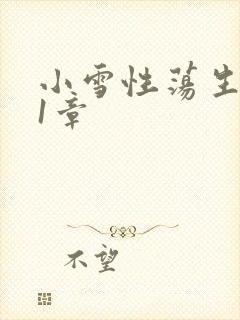 小雪性荡生
1章
不望